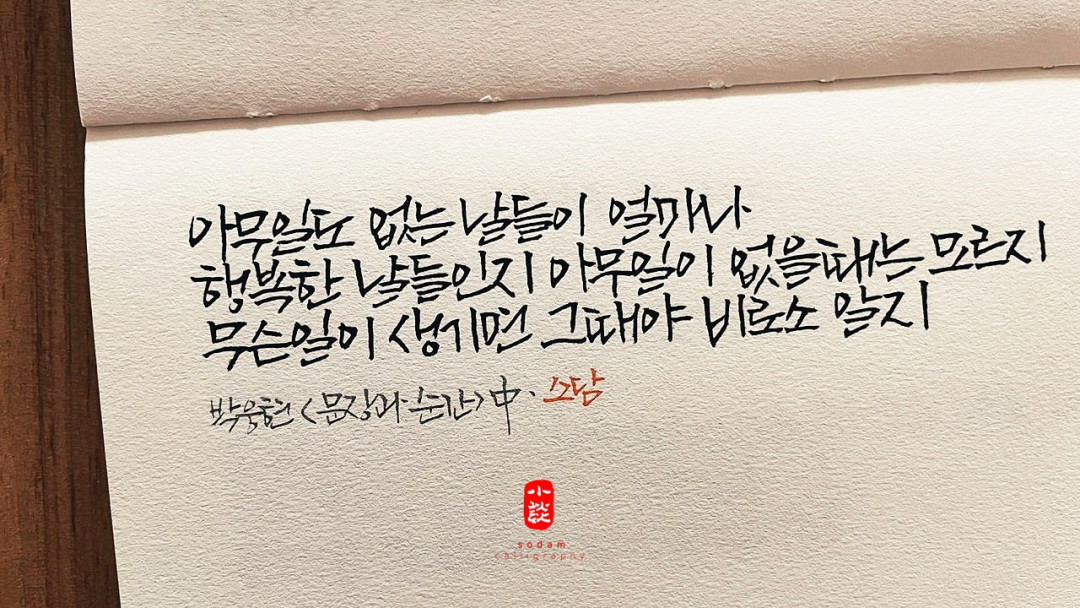 아무일도 없는 날들이 얼마나
행복한 날들인지 아무일이 없을때는 모르지
무슨일이 생기면 그때야 비로소 알지
박웅현 <문장과 순간> 中. 소담
小談
sodam
calligraphy